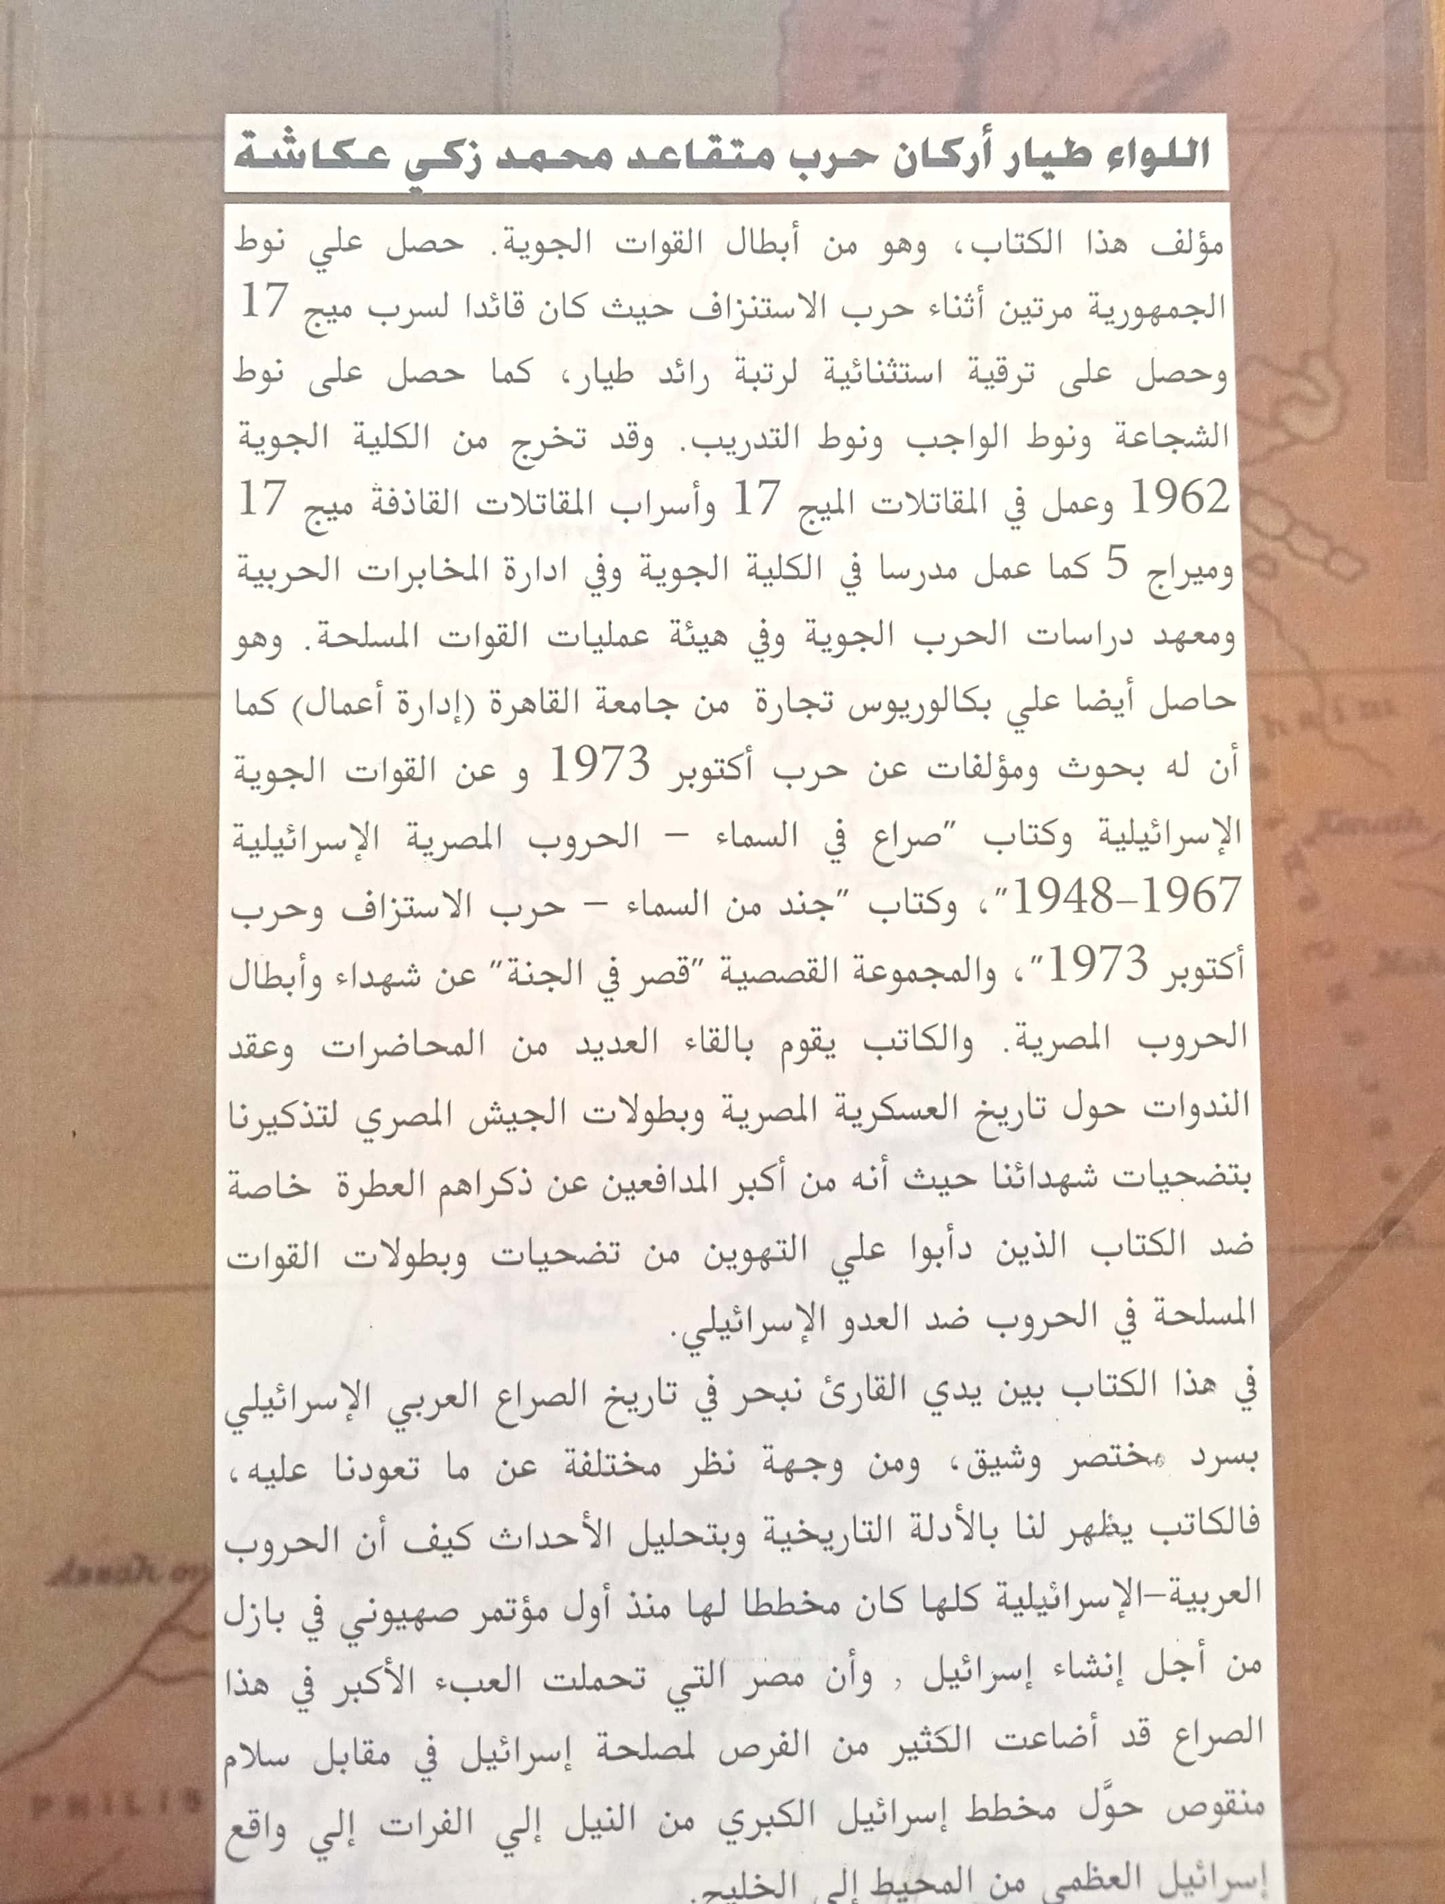 اللواء طيار أركان حرب متقاعد محمد زكي عكاشة
مؤلف هذا الكتاب، وهو من أبطال القوات الجوية. حصل علي نوط
الجمهورية مرتين أثناء حرب الاستنزاف حيث كان قائدا لسرب ميج 17
وحصل على ترقية استثنائية لرتبة رائد طيار، كما حصل على نوط
الشجاعة ونوط الواجب ونوط التدريب. وقد تخرج من الكلية الجوية
1962 وعمل في المقاتلات الميج 17 وأسراب المقاتلات القاذفة ميج 17
وميراج 5 كما عمل مدرسا في الكلية الجوية وفي ادارة المخابرات الحربية
ومعهد دراسات الحرب الجوية وفي هيئة عمليات القوات المسلحة. وهو
حاصل أيضا علي بكالوريوس تجارة من جامعة القاهرة (إدارة أعمال) كما
أن له بحوث ومؤلفات عن حرب أكتوبر 1973 و عن القوات الجوية
الإسرائيلية وكتاب "صراع في السماء – الحروب المصرية الإسرائيلية
1948–1967"، وكتاب "جند من السماء – حرب الاستزاف وحرب
أكتوبر 1973"، والمجموعة القصصية "قصر في الجنة" عن شهداء وأبطال
الحروب المصرية. والكاتب يقوم بالقاء العديد من المحاضرات وعقد
الندوات حول تاريخ العسكرية المصرية وبطولات الجيش المصري لتذكيرنا
بتضحيات شهدائنا حيث أنه من أكبر المدافعين عن ذكراهم العطرة خاصة
ضد الكتاب الذين دأبوا علي التهوين من تضحيات وبطولات القوات
المسلحة في الحروب ضد العدو الإسرائيلي.
في هذا الكتاب بين يدي القارئ نبحر في تاريخ الصراع العربي الإسرائيلي
بسرد مختصر وشيق، ومن وجهة نظر مختلفة عن ما تعودنا عليه،
فالكاتب يظهر لنا بالأدلة التاريخية وبتحليل الأحداث كيف أن الحروب
العربية–الإسرائيلية كلها كان مخططا لها منذ أول مؤتمر صهيوني في بازل
من أجل إنشاء إسرائيل , وأن مصر التي تحملت العبء الأكبر في هذا
الصراع قد أضاعت الكثير من الفرص لمصلحة إسرائيل في مقابل سلام
منقوص حوَّل مخطط إسرائيل الكبري من النيل إلي الفرات إلي واقع
إسرائيل العظمي من المحيط إلى الخليج.